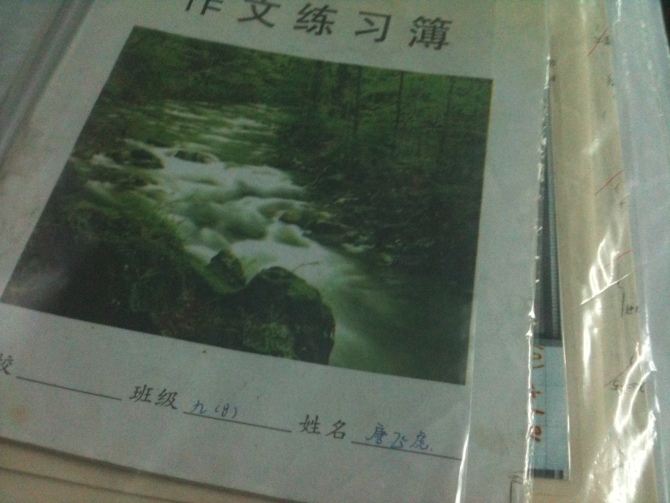 作文练习簿
校 班级 九(8) 姓名 唐飞虎